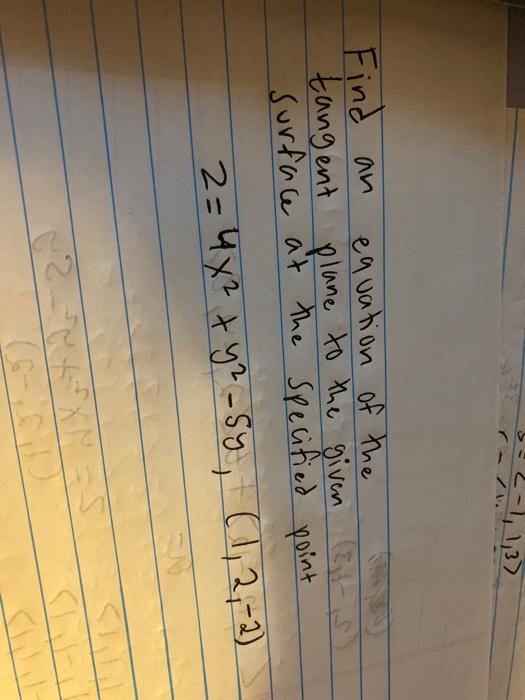 Find an equation of the
tangent plane to the given
surface at the specified point
z = 4x² + y² - 5y, (1, 2, -2)